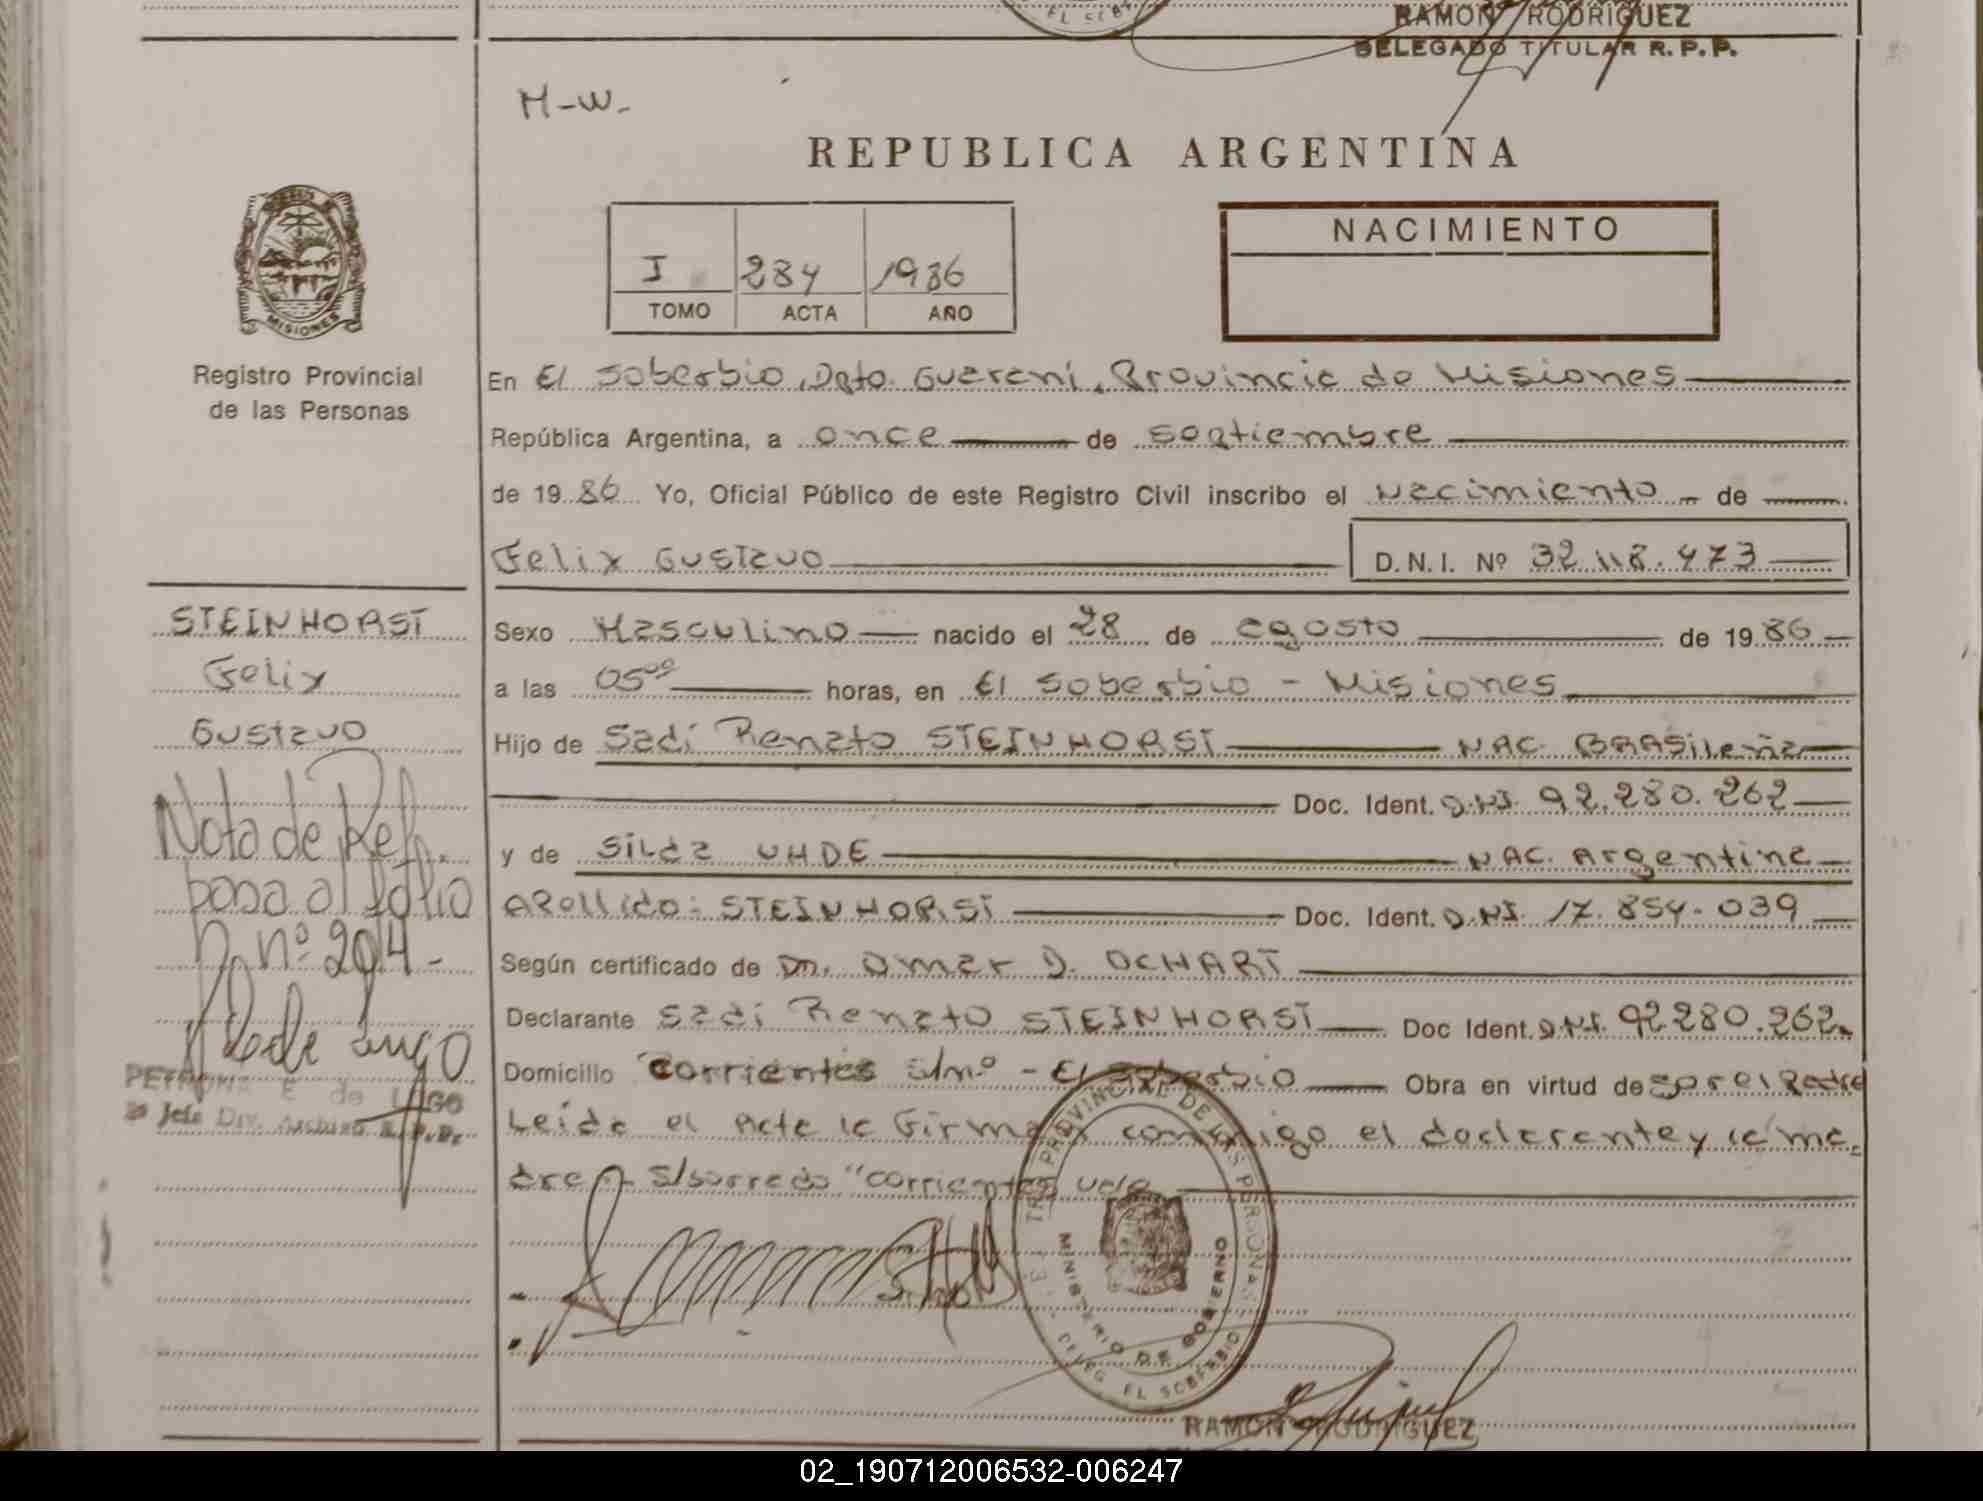 EL SOBE
RAMON RODRIGUEZ
DELEGADO TITULAR R.P.P.
M-W-
REPUBLICA ARGENTINA
NACIMIENTO
I 284 1986
TOMO ACTA AÑO
MISIONES
Registro Provincial
de las Personas
En El Soberbio, Dpto. Guarani, Provincia de Misiones
República Argentina, a once de septiembre
de 1986 Yo, Oficial Público de este Registro Civil inscribo el Nacimiento de
Felix Gustavo D.N.I. Nº 32.118.473
STEINHORST
Felix
Gustavo
Nota de Ref.
pasa al folio
nº 294-
PETRONA E de LUGO
Jefe Div. Archivo R.P.P.
Sexo Masculino nacido el 28 de agosto de 1986
a las 05⁰⁰ horas, en El Soberbio - Misiones
Hijo de Sadi Renato STEINHORST NAC. BRASileña
Doc. Ident. D.N.I. 92.280.262
y de Silda UHDE NAC. Argentina
Apellido: STEINHORST Doc. Ident. D.N.I. 17.854.039
Según certificado de Dr. Omar D. OCHART
Declarante Sadi Renato STEINHORST Doc Ident. D.N.I. 92.280.262
Domicilio Corrientes s/nº - El Soberbio Obra en virtud de ser el Padre
Leida el Acta la firman conmigo el declarante y la ma-
dre s/borrado "corrientes vale
REG. PROVINCIAL DE LAS PERSONAS
MINISTERIO DE GOBIERNO
DELEG. EL SOBERBIO
RAMON RODRIGUEZ
02_190712006532-006247